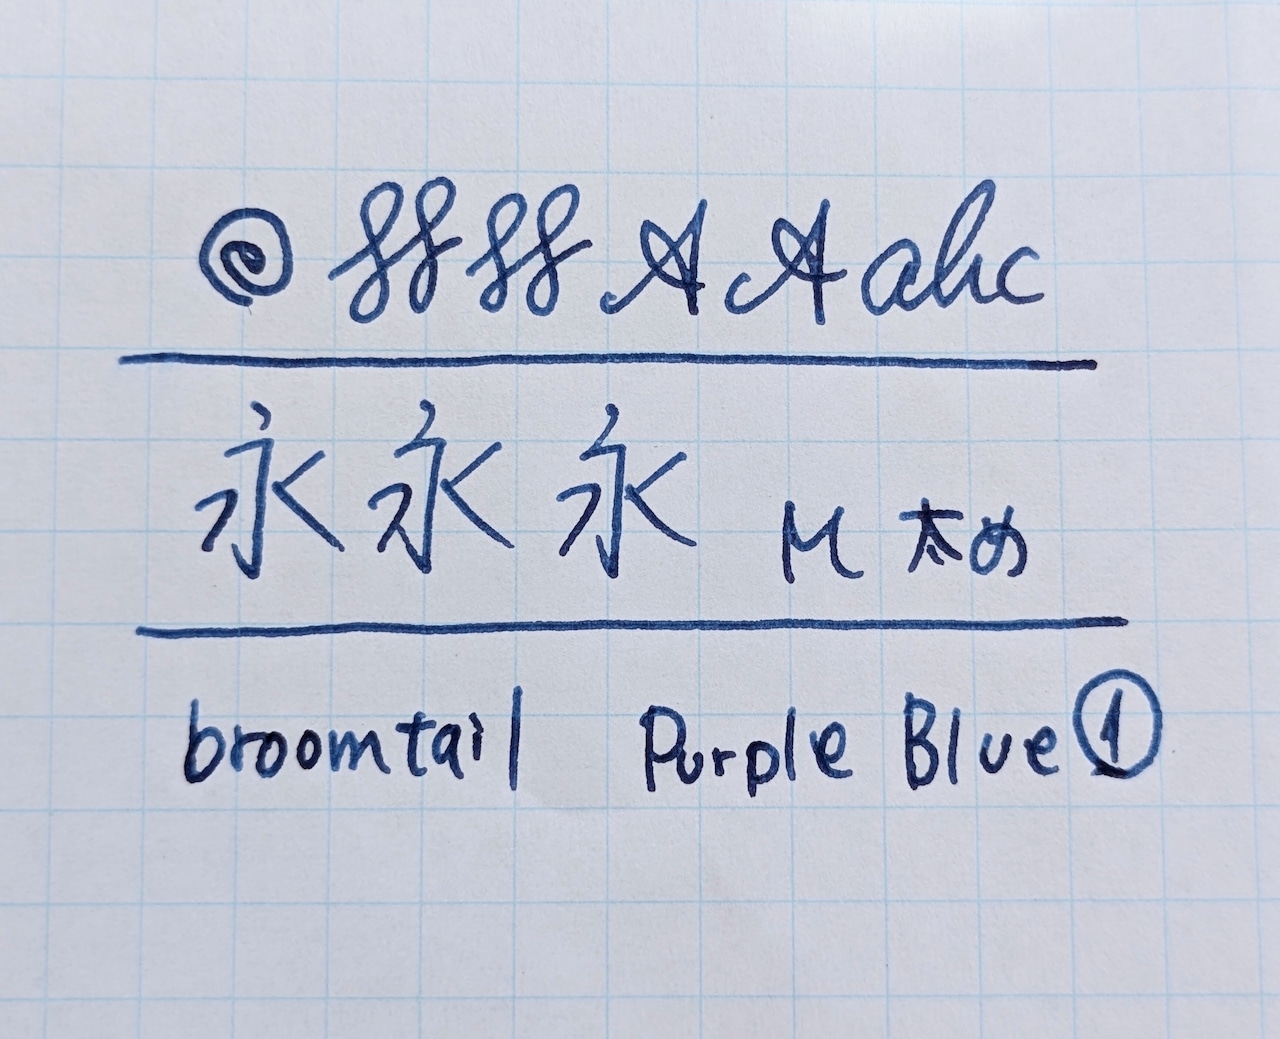 @ ſſſſ A A abc
永永永 M 太め
broomtail Purple Blue①